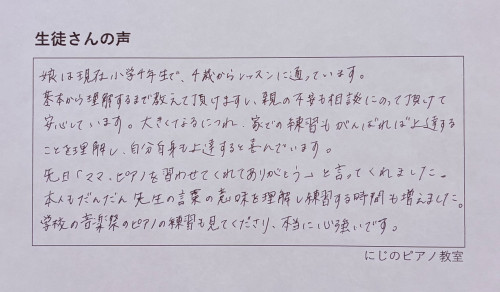 生徒さんの声
娘は現在小学4年生で、4歳からレッスンに通っています。
基本から理解するまで教えて頂けますし、親の不安も相談にのって頂けて
安心しています。大きくなるにつれ、家での練習もがんばれば上達する
ことを理解し、自分自身も上達すると喜んでいます。
先日「ママ、ピアノを習わせてくれてありがとう」と言ってくれました。
本人もだんだん先生の言葉の意味を理解し練習する時間も増えました。
学校の音楽祭のピアノの練習も見てくださり、本当に心強いです。
にじのピアノ教室